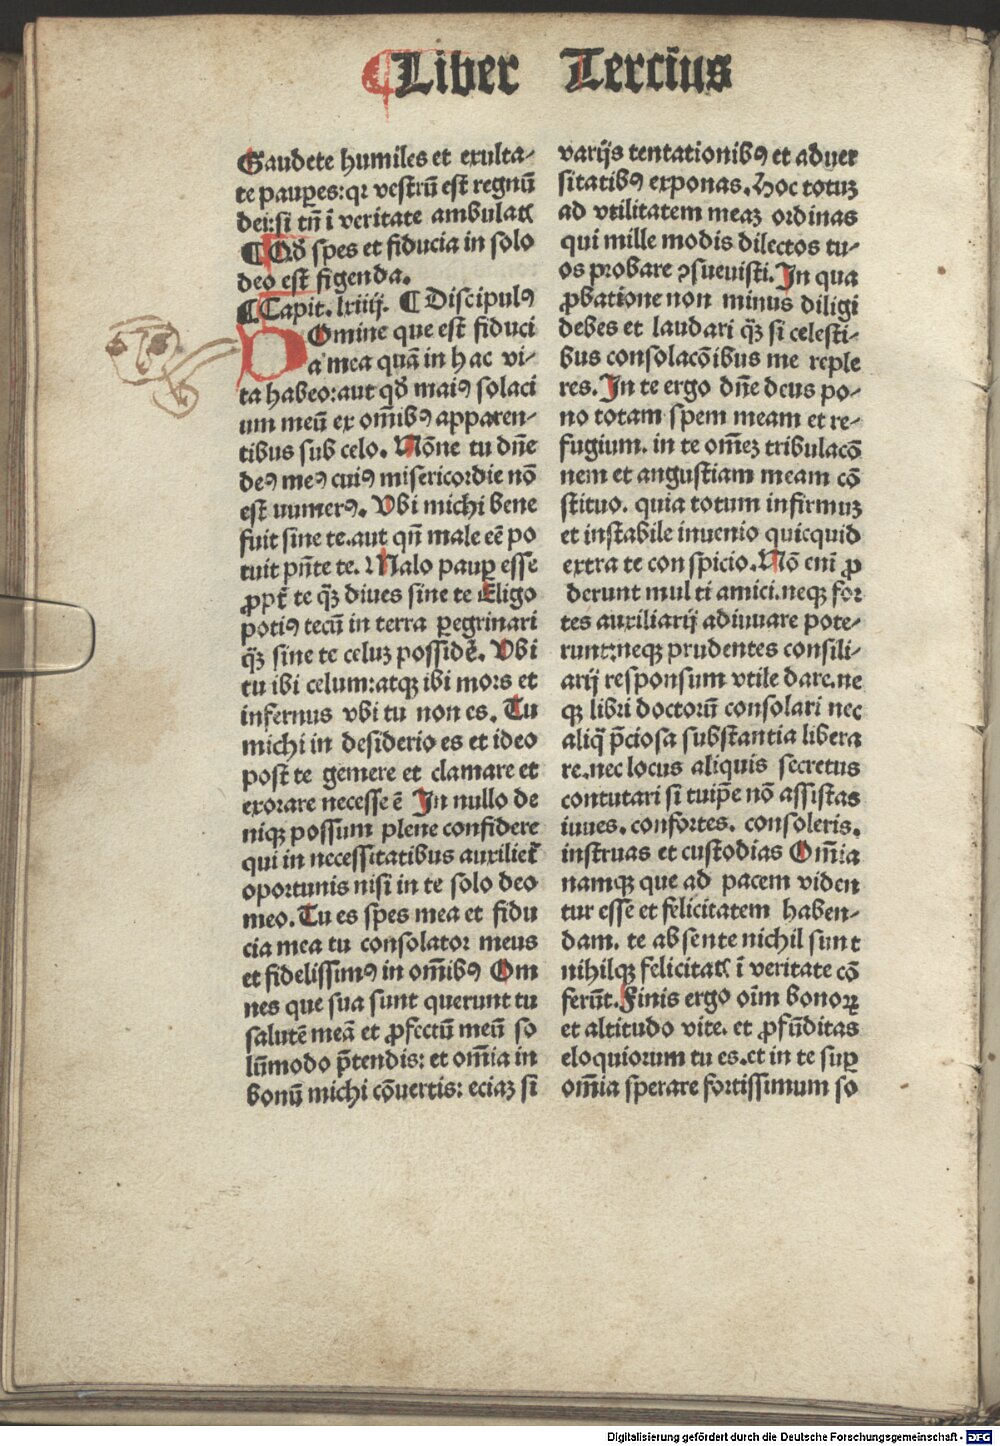 ¶ Liber Tercius
Gaudete humiles et exulta-
te paup̲es: qr vestrū est regnū
dei: si tn̄ ī veritate ambulatꝭ
¶ Qd̄ spes et fiducia in solo
deo est figenda.
¶ Capit. lxiiij. ¶ Discipulꝰ
DOmine que est fiduci
a mea quā in hac vi-
ta habeo: aut qd̄ maiꝰ solaci
um meū ex om̄ibꝰ apparen-
tibus sub celo. Nōne tu dn̄e
deꝰ meꝰ cuiꝰ misericordie nō
est uumerꝰ. Vbi michi bene
fuit sine te. aut qn̄ male eē po
tuit pn̄te te. Malo paup̲ esse
ꝓpt̄ te qꝫ̄ diues sine te Eligo
potiꝰ tecū in terra p̲egrinari
qꝫ̄ sine te celuꝫ possidē. Vbi
tu ibi celum: atqꝫ ibi mors et
infernus vbi tu non es. Tu
michi in desiderio es et ideo
post te gemere et clamare et
exorare necesse ē In nullo de
niqꝫ possum plene confidere
qui in necessitatibus auxiliet᷑
oportunis nisi in te solo deo
meo. Tu es spes mea et fidu
cia mea tu consolator meus
et fidelissimꝰ in om̄ibꝰ Om
nes que sua sunt querunt tu
salutē meā et ꝓfectū meū so
lūmodo p̄tendis: et om̄ia in
bonū michi cōuertis: eciaꝫ si
varijs tentationibꝰ et aduer
sitatibꝰ exponas. Hoc totuꝫ
ad vtilitatem meaꝫ ordinas
qui mille modis dilectos tu-
os probare ꝯsueuisti. In qua
ꝓbatione non minus diligi
debes et laudari qꝫ̄ si celesti-
bus consolacōibus me reple
res. In te ergo dn̄e deus po-
no totam spem meam et re-
fugium. in te om̄eꝫ tribulacō
nem et angustiam meam cō
stituo. quia totum infirmuꝫ
et instabile inuenio quicquid
extra te conspicio. Nō eni̅ ꝓ
derunt multi amici. neqꝫ for
tes auxiliarij adiuuare pote-
runt: neqꝫ prudentes consili-
arij responsum vtile dare. ne
qꝫ libri doctorū consolari nec
aliq̄ p̄ciosa substantia libera
re. nec locus aliquis secretus
contutari si tuip̄e nō assistas
iuues. confortes. consoleris.
instruas et custodias Om̄ia
namqꝫ que ad pacem viden
tur esse et felicitatem haben-
dam. te absente nichil sunt
nihilqꝫ felicitatꝭ ī veritate cō
ferūt. Finis ergo oīm bonoꝝ
et altitudo vite. et ꝓfūditas
eloquiorum tu es. et in te sup̲
om̄ia sperare fortissimum so
Digitalisierung gefördert durch die Deutsche Forschungsgemeinschaft - DFG